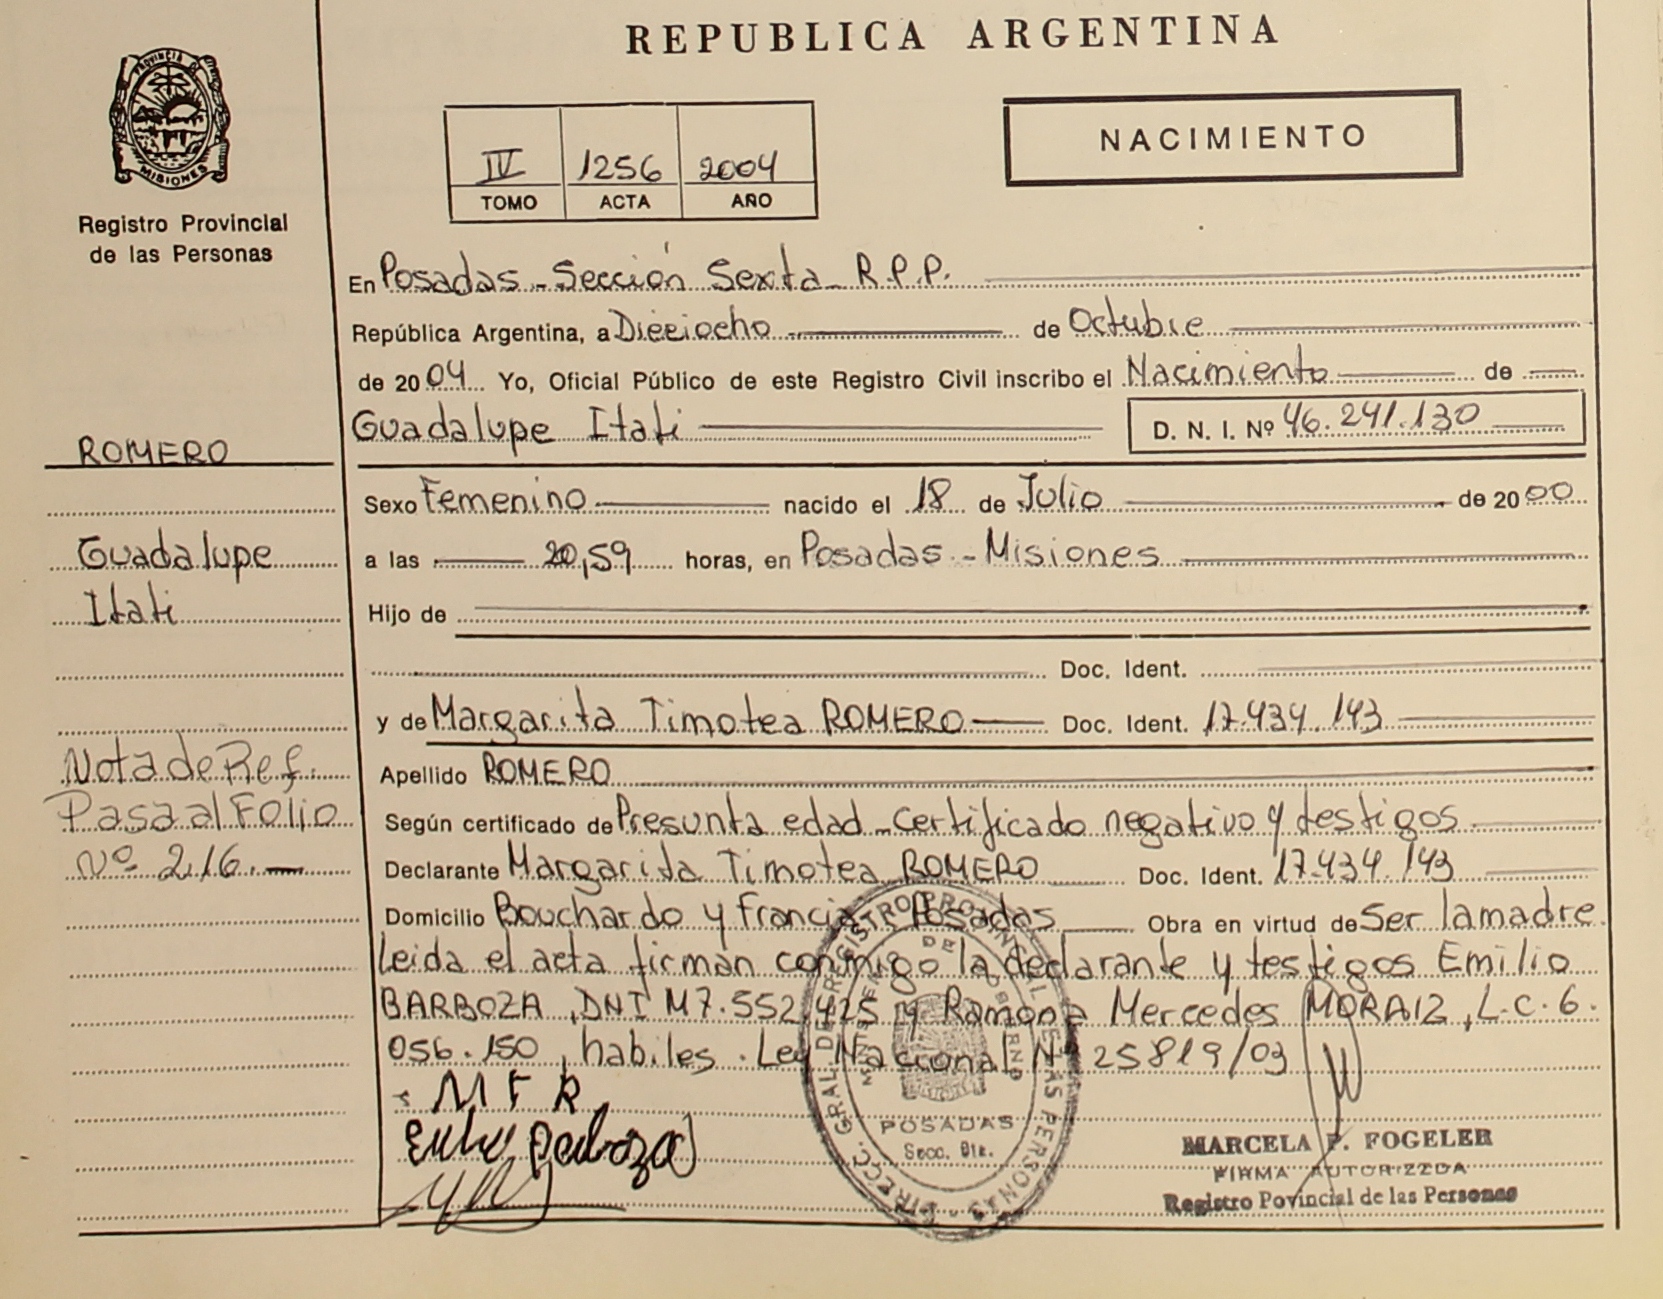 REPUBLICA ARGENTINA
PROVINCIA DE MISIONES
Registro Provincial
de las Personas
IV 1256 2004
TOMO ACTA AÑO
NACIMIENTO
En Posadas - Sección Sexta - R.P.P.
República Argentina, a Dieciocho de Octubre
de 2004 Yo, Oficial Público de este Registro Civil inscribo el Nacimiento de
Guadalupe Itati D. N. I. Nº 46.241.130
ROMERO
Sexo Femenino nacido el 18 de Julio de 2000
Guadalupe
a las 20,59 horas, en Posadas - Misiones
Itati
Hijo de
Doc. Ident.
y de Margarita Timotea ROMERO Doc. Ident. 17.434.143
Nota de Ref.
Pasa al Folio
Nº 216.
Apellido ROMERO
Según certificado de Presunta edad - certificado negativo y testigos
Declarante Margarita Timotea ROMERO Doc. Ident. 17.434.143
Domicilio Bouchardo y Francia - Posadas Obra en virtud de Ser la madre
leida el acta firman conmigo la declarante y testigos Emilio
BARBOZA, DNI M7.552.425 y Ramona Mercedes MORAIZ, L.C. 6.
056.150, habiles. Ley Nacional Nº 25819/03
M F R
DIRECC. GRAL. DE REGISTRO PROVINCIAL DE LAS PERSONAS
MINISTERIO DE GOBIERNO
POSADAS
Secc. 6ta.
MARCELA F. FOGELER
FIRMA AUTORIZADA
Registro Povincial de las Personas